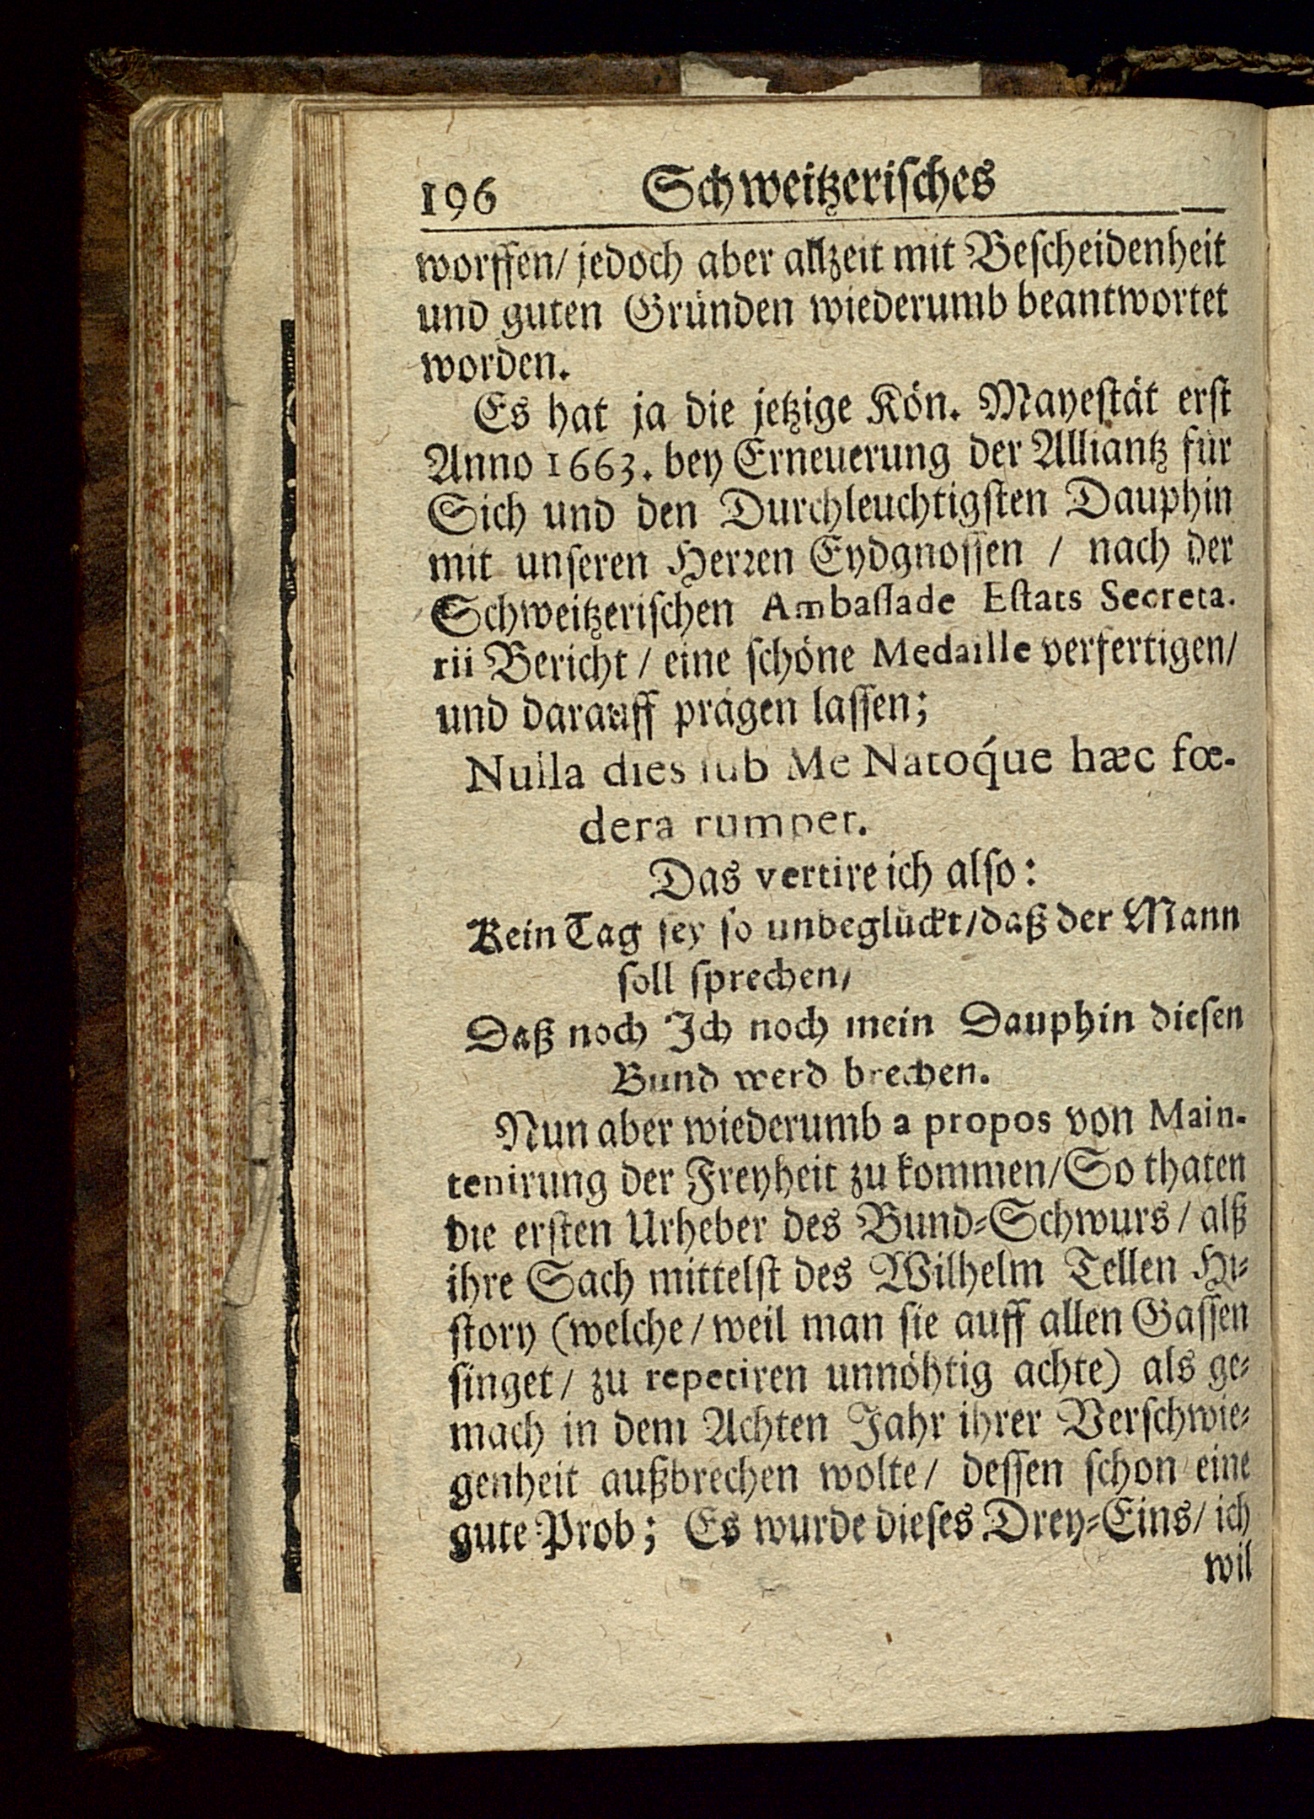 196 Schweitzerisches
worffen/ jedoch aber allzeit mit Bescheidenheit
und guten Gründen wiederumb beantwortet
worden.
Es hat ja die jetzige Kön. Mayestät erst
Anno 1663. bey Erneuerung der Alliantz für
Sich und den Durchleuchtigsten Dauphin
mit unseren Herren Eydgnossen / nach der
Schweitzerischen Ambassade Estats Secreta.
rii Bericht / eine schöne Medaille verfertigen/
und darauff prägen lassen;
Nulla dies sub Me Natoq́ue hæc fœ-
dera rumpet.
Das vertire ich also:
Kein Tag sey so unbeglückt/daß der Mann
soll sprechen/
Daß noch Ich noch mein Dauphin diesen
Bund werd brechen.
Nun aber wiederumb a propos von Main-
tenirung der Freyheit zu kommen/So thaten
die ersten Urheber des Bund-Schwurs / alß
ihre Sach mittelst des Wilhelm Tellen Hi-
story (welche / weil man sie auff allen Gassen
singet / zu repetiren unnöhtig achte) als ge-
mach in dem Achten Jahr ihrer Verschwie-
genheit außbrechen wolte / dessen schon eine
gute Prob; Es wurde dieses Drey-Eins/ ich
wil